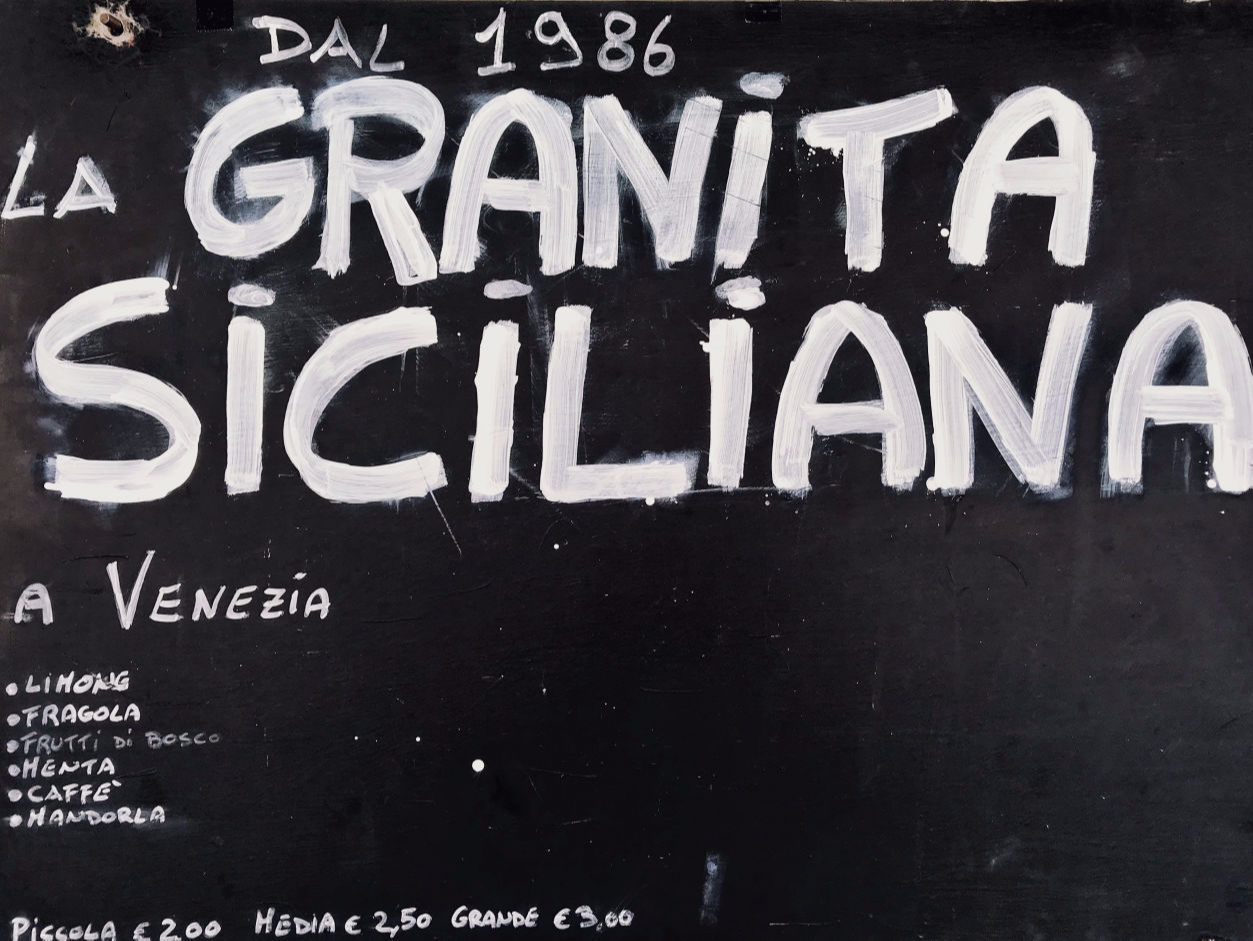 DAL 1986
LA GRANiTA
SiCiLiANA
A VENEZiA
• LiMONE
• FRAGOLA
• FRUTTi Di BOSCO
• MENTA
• CAFFE`
• MANDORLA
PiCCOLA € 2.00 MEDiA € 2,50 GRANDE € 3,00